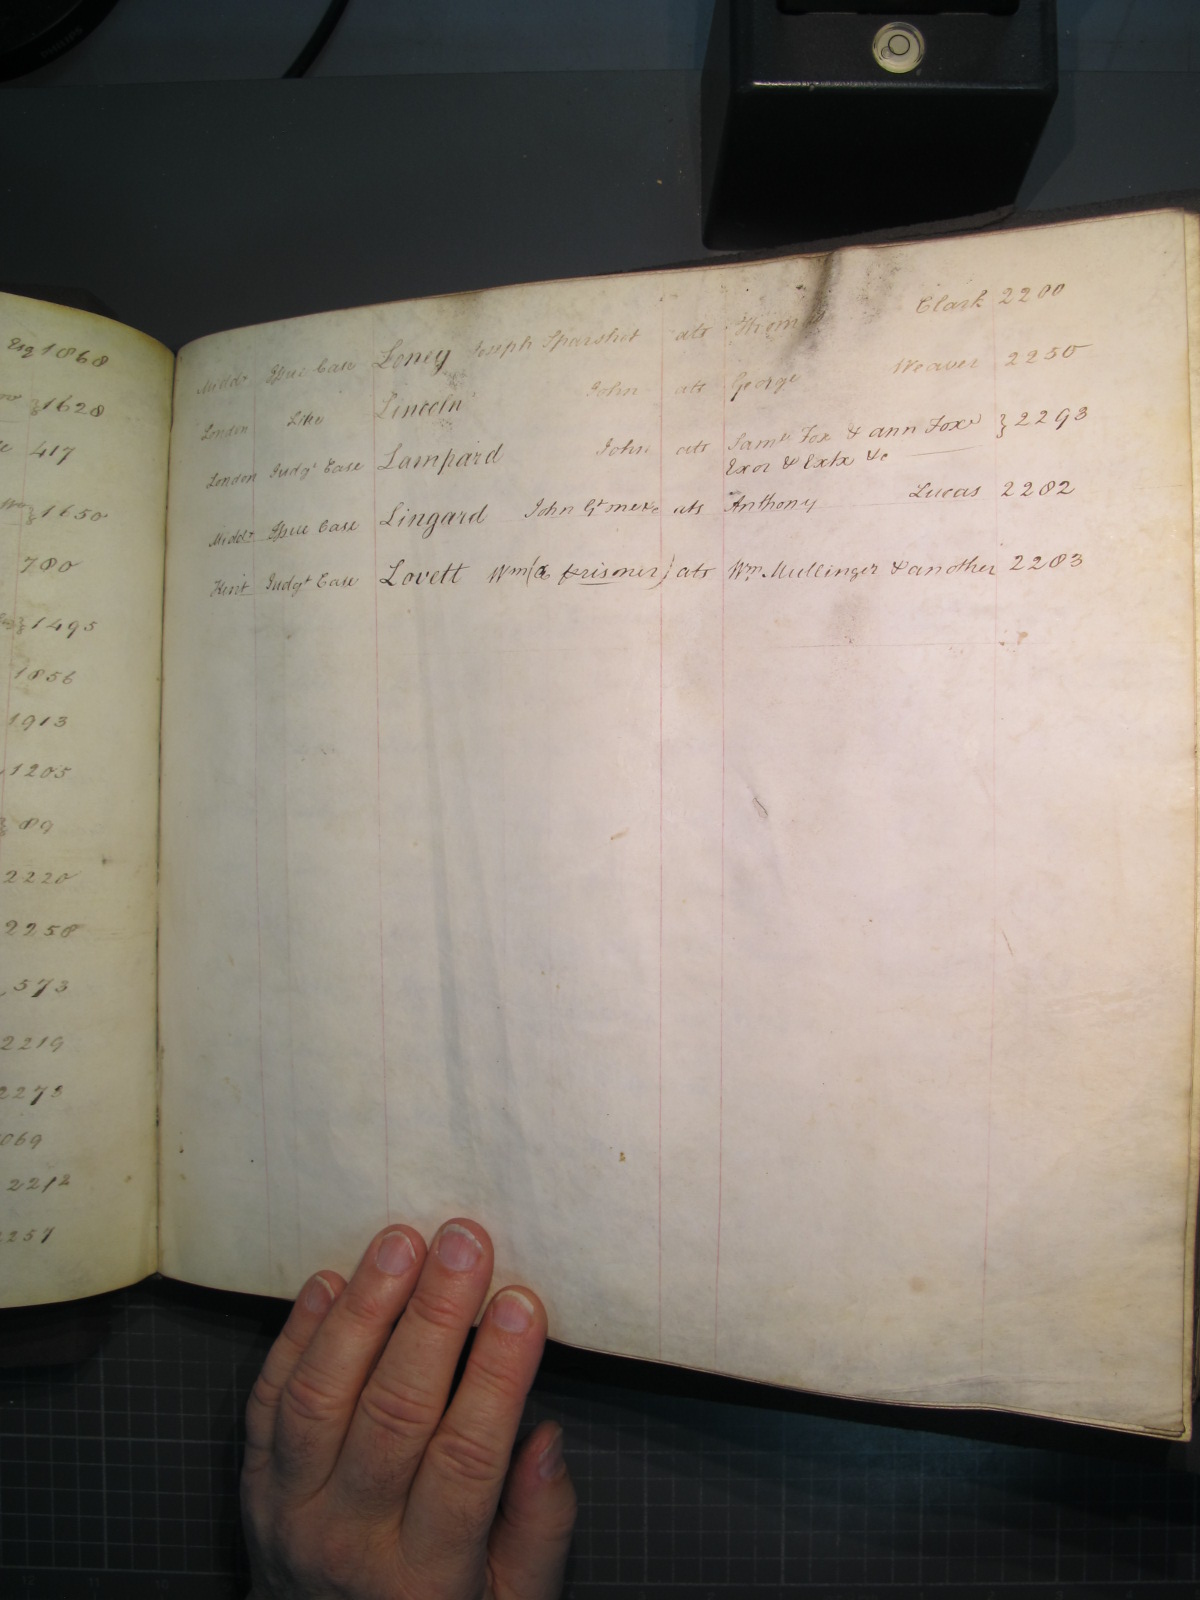 Esq 1868
1628
417
1650
780
1495
1856
1913
1205
89
2220
2258
573
2219
2273
069
2212
2257
Middx Spec Case Loney Joseph Sparshot ats Thomas Clark 2200
London Like Lincoln John ats George Weaver 2250
London Judgt Case Lampard John ats Saml Fox & ann Fox } 2293
Exor & Extx &c
Middx Spec Case Lingard John ats Anthony Lucas 2282
Kent Judgt Case Lovett Wm (a prisoner) ats Wm. Mullinger & another 2283